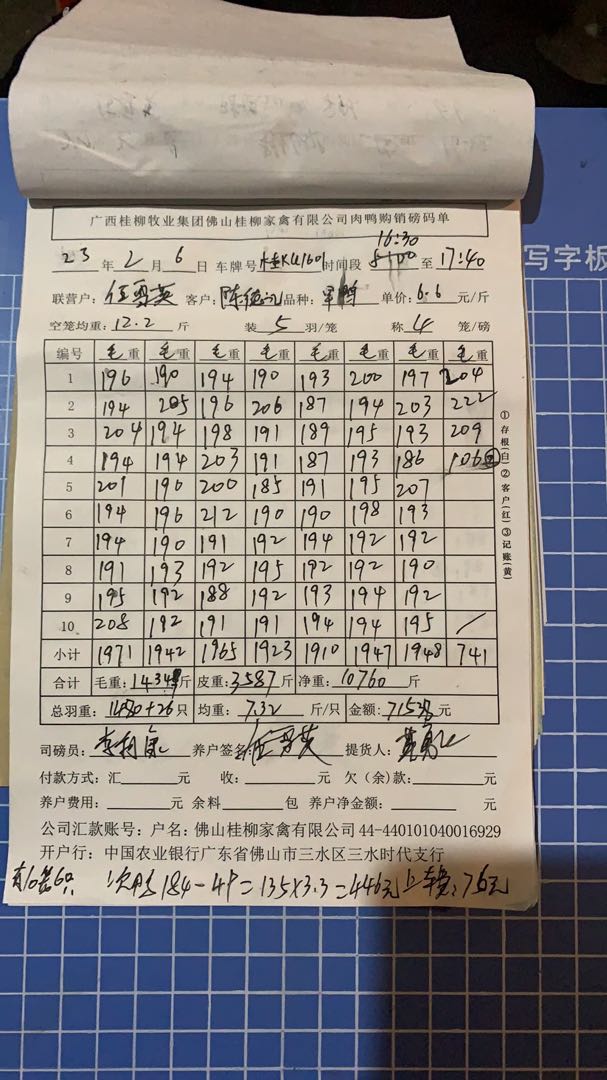 广西桂柳牧业集团佛山桂柳家禽有限公司肉鸭购销磅码单
16:30
23 年 2 月 6 日 车牌号 时间段 至 17:40
联营户: 伍雪英 客户: 品种: 单价: 6.6 元/斤
空笼均重: 12.2 斤 装 5 羽/笼 称 4 笼/磅
编号 毛重 毛重 毛重 毛重 毛重 毛重 毛重 毛重
1 196 190 194 190 193 200 197 204
2 194 205 196 206 187 194 203 222
3 204 194 198 191 189 195 193 209
4 194 194 203 191 187 193 186 106
5 201 190 200 185 191 195 207
6 194 196 212 190 190 198 193
7 194 190 191 192 194 192 192
8 191 193 192 195 192 192 190
9 195 192 188 192 193 194 192
10 208 191 191 194 194 195 /
小计 1971 1942 1965 1923 1910 1947 1948 741
合计 毛重: 斤 皮重: 3587 斤 净重: 10760 斤
总羽重: +26 只 均重: 7.32 斤/只 金额: 元
司磅员: 养户签名: 提货人:
付款方式: 汇 元 收: 元 欠(余)款: 元
养户费用: 元 余料 包 养户净金额: 元
公司汇款账号: 户名: 佛山桂柳家禽有限公司 44-440101040016929
开户行: 中国农业银行广东省佛山市三水区三水时代支行
184-49=135×3.3=446元 上车费:76元
①存根(白)②客户(红)③记账(黄)
写字板